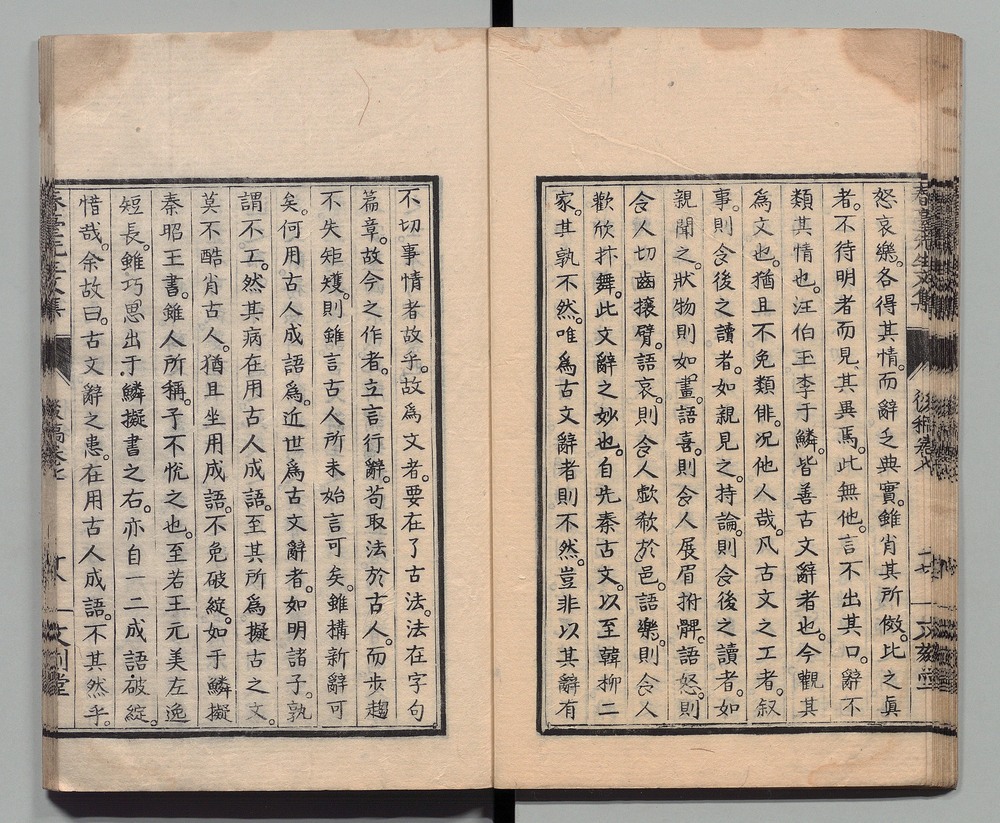 怒哀樂。各得其情。而辭乏典實。雖肖其所倣。比之眞
者。不待明者而見其異焉。此無他。言不出其口。辭不
類其情也。汪伯玉李于鱗。皆善古文辭者也。今觀其
爲文也。猶且不免類俳。况他人哉。凡古文之工者。叙
事。則令後之讀者。如親見之。持論。則令後之讀者。如
親聞之。狀物則如畫。語喜。則令人展眉拊髀。語怒。則
令人切齒攘臂。語哀。則令人歔欷於邑。語樂。則令人
歡欣抃舞。此文辭之妙也。自先秦古文。以至韓柳二
家。其孰不然。唯爲古文辭者則不然。豈非以其辭有
不切事情者故乎。故爲文者。要在了古法。法在字句
篇章。故今之作者。立言行辭。苟取法於古人。而步趨
不失矩矱。則雖言古人所未始言可矣。雖構新辭可
矣。何用古人成語爲。近世爲古文辭者。如明諸子。孰
謂不工。然其病在用古人成語。至其所爲擬古之文。
莫不酷肖古人。猶且坐用成語。不免破綻。如于鱗擬
秦昭王書。雖人所稱。予不悅之也。至若王元美左逸
短長。雖巧思出于鱗擬書之右。亦自一二成語破綻。
惜哉。余故曰。古文辭之患。在用古人成語。不其然乎。